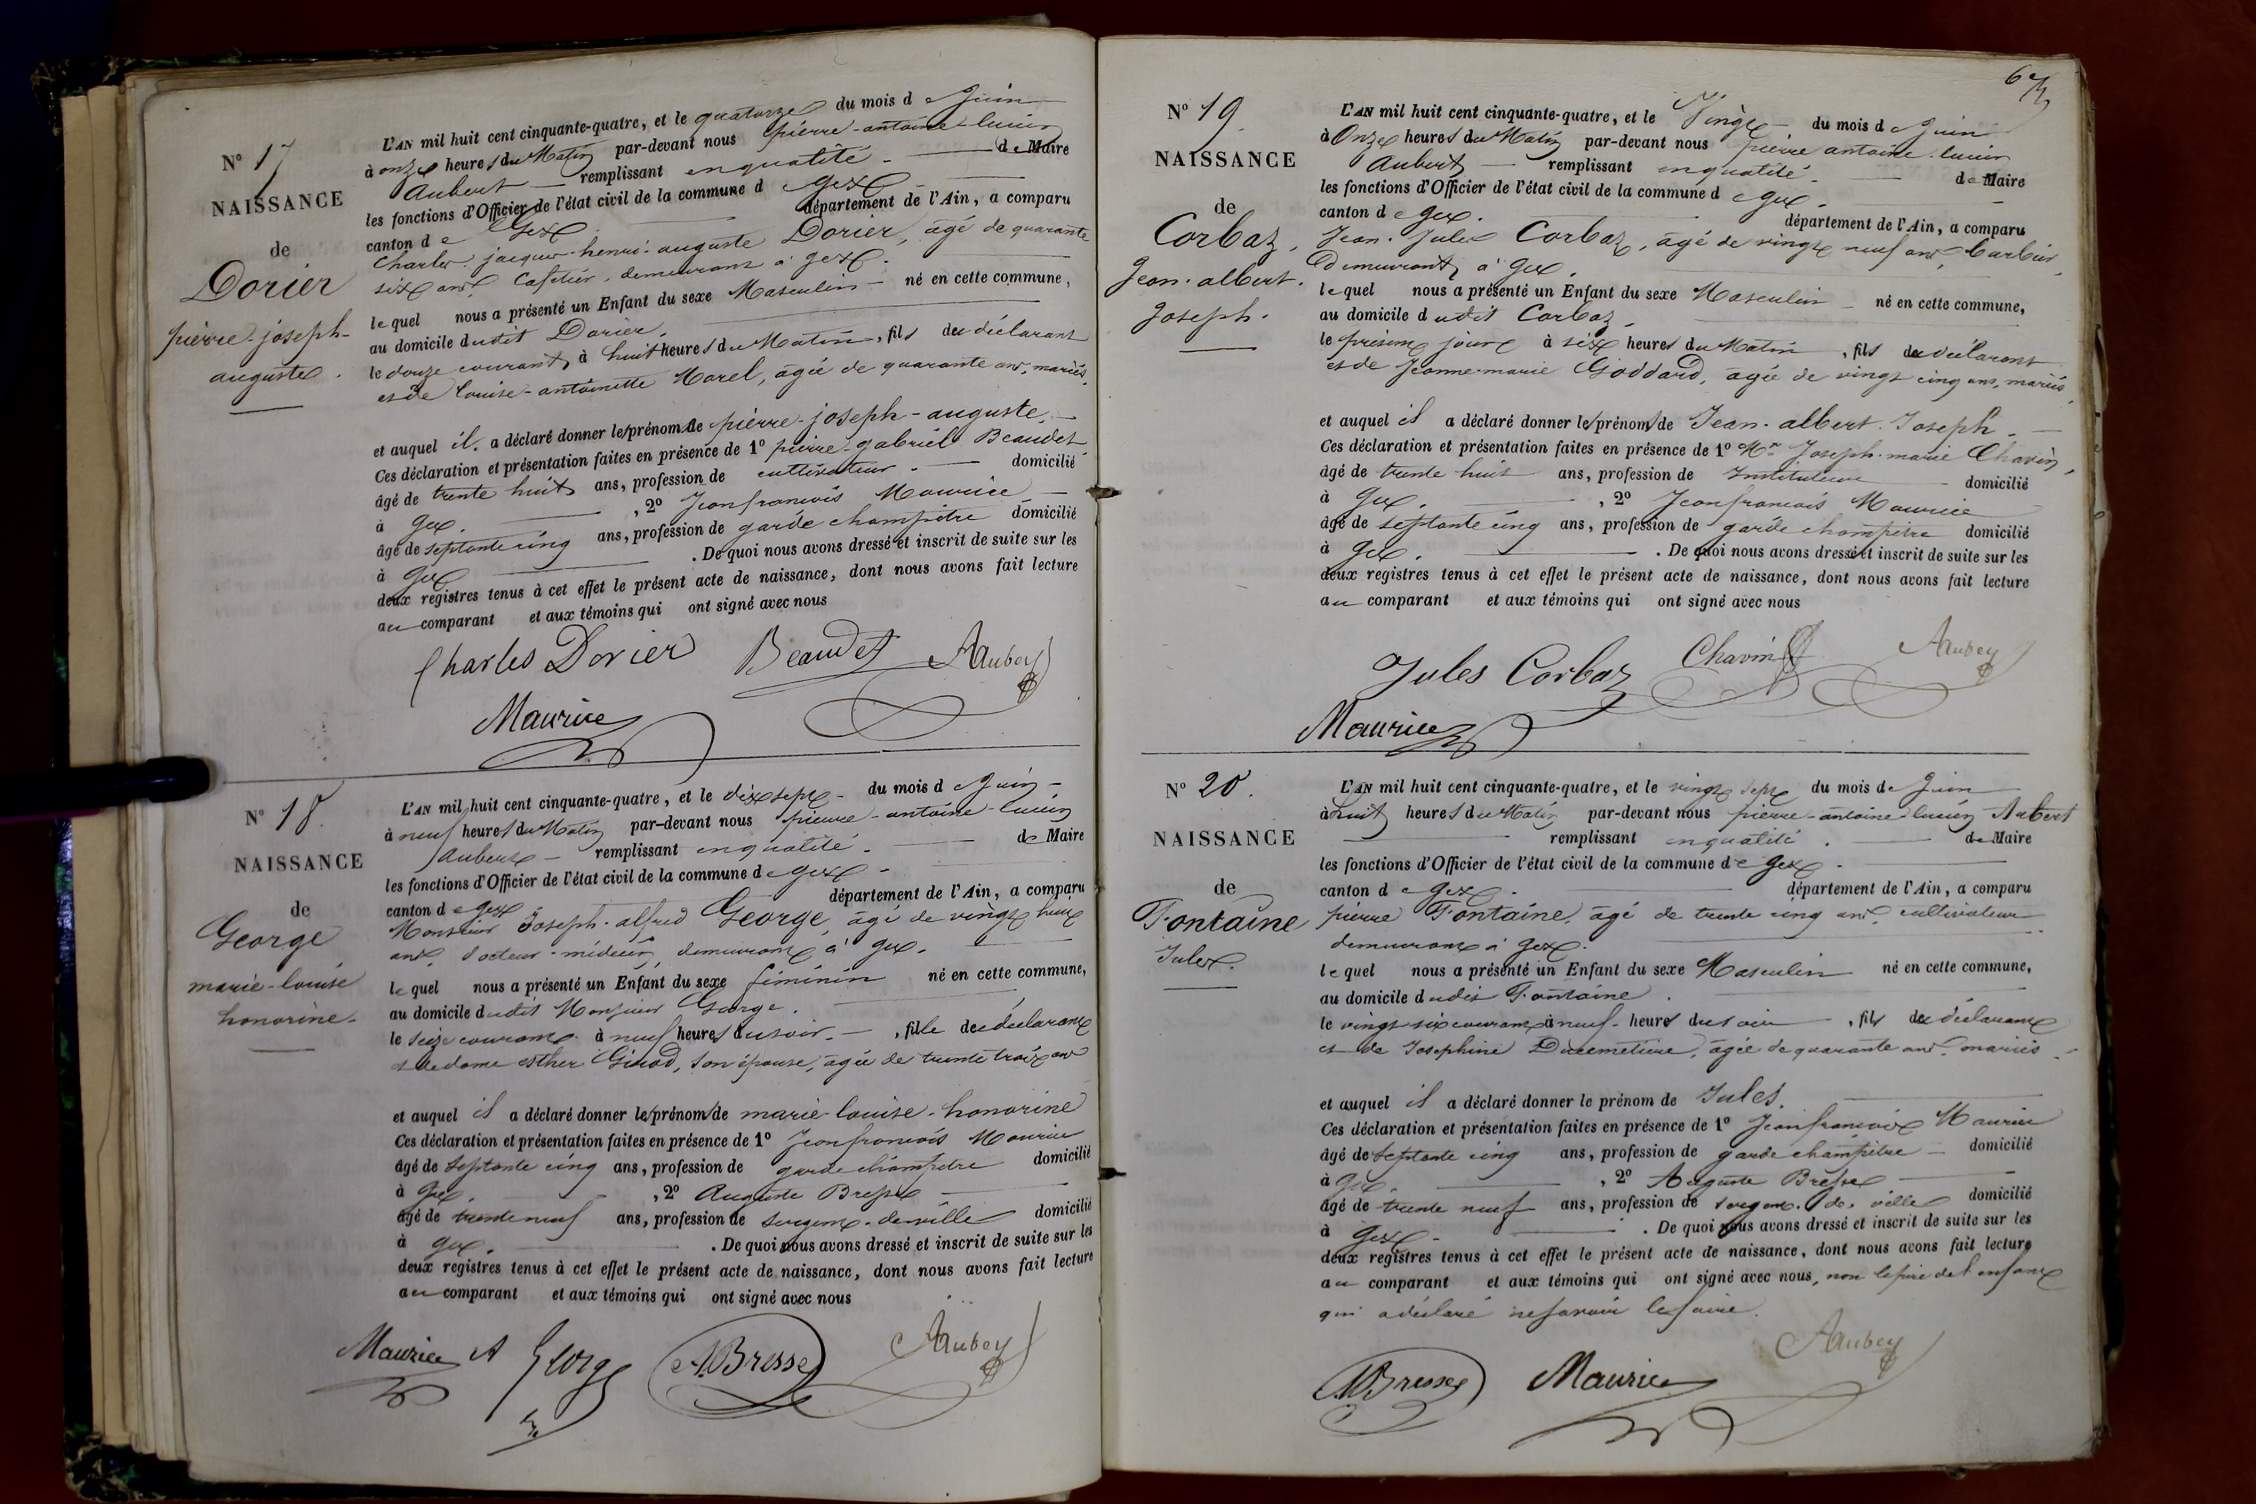 N° 17
NAISSANCE
de
Dorier
pierre-joseph-
auguste.
L'AN mil huit cent cinquante-quatre, et le quatorze du mois de Juin
à onze heures du Matin par-devant nous pierre-antoine-lucien
Aubert remplissant en qualité de Maire
les fonctions d'Officier de l'état civil de la commune de Gex
canton de Gex département de l'Ain, a comparu
Charles-jacques-henri-auguste Dorier, âgé de quarante
six ans, Cafetier, demeurant à Gex.
lequel nous a présenté un Enfant du sexe Masculin né en cette commune,
au domicile dudit Dorier.
le douze courant, à huit heures du Matin, fils du déclarant
et de louise-antoinette Morel, âgée de quarante ans, mariés,
et auquel il a déclaré donner les prénoms de pierre-joseph-auguste.
Ces déclaration et présentation faites en présence de 1° pierre-gabriel Beaudet
âgé de trente huit ans, profession de cultivateur. domicilié
à Gex. , 2° Jean francois Maurice
âgé de septante cinq ans, profession de garde champêtre domicilié
à Gex . De quoi nous avons dressé et inscrit de suite sur les
deux registres tenus à cet effet le présent acte de naissance, dont nous avons fait lecture
au comparant et aux témoins qui ont signé avec nous
Charles Dorier Beaudet Aubert
Maurice
N° 18
NAISSANCE
de
George
marie-louise
honorine.
L'AN mil huit cent cinquante-quatre, et le dix sept du mois de Juin
à neuf heures du Matin par-devant nous pierre-antoine-lucien
Aubert remplissant en qualité. de Maire
les fonctions d'Officier de l'état civil de la commune de Gex
canton de Gex département de l'Ain, a comparu
Monsieur Joseph-alfred George, âgé de vingt huit
ans, docteur-médecin, demeurant à Gex.
lequel nous a présenté un Enfant du sexe féminin né en cette commune,
au domicile dudit Monsieur George.
le seize courant à neuf heures du soir. , fille du déclarant
et de dame esther Girod, son épouse, âgée de trente trois ans
et auquel il a déclaré donner les prénoms de marie-louise-honorine
Ces déclaration et présentation faites en présence de 1° Jean francois Maurice
âgé de septante cinq ans, profession de garde champêtre domicilié
à Gex. , 2° Auguste Bresse
âgé de trente neuf ans, profession de sergent de ville domicilié
à Gex. . De quoi nous avons dressé et inscrit de suite sur les
deux registres tenus à cet effet le présent acte de naissance, dont nous avons fait lecture
au comparant et aux témoins qui ont signé avec nous
Maurice A George A. Bresse Aubert
N° 19
NAISSANCE
de
Corbaz,
Jean-albert-
Joseph.
L'AN mil huit cent cinquante-quatre, et le Vingt du mois de Juin
à Onze heures du Matin par-devant nous pierre antoine-lucien
Aubert remplissant en qualité de Maire
les fonctions d'Officier de l'état civil de la commune de Gex.
canton de Gex. département de l'Ain, a comparu
Jean-Jules Corbaz, âgé de vingt neuf ans, barbier,
demeurant à Gex.
lequel nous a présenté un Enfant du sexe Masculin né en cette commune,
au domicile dudit Corbaz.
le présent jour à six heures du Matin , fils du déclarant
et de Jeanne-marie Goddard, âgée de vingt cinq ans, mariés,
et auquel il a déclaré donner les prénoms de Jean-albert-Joseph.
Ces déclaration et présentation faites en présence de 1° Mr Joseph-marie Chavin,
âgé de trente huit ans, profession de Instituteur domicilié
à Gex. , 2° Jean francois Maurice
âgé de septante cinq ans, profession de garde champêtre domicilié
à Gex. . De quoi nous avons dressé et inscrit de suite sur les
deux registres tenus à cet effet le présent acte de naissance, dont nous avons fait lecture
au comparant et aux témoins qui ont signé avec nous
Jules Corbaz Chavin Aubert
Maurice
N° 20.
NAISSANCE
de
Fontaine
Jules.
L'AN mil huit cent cinquante-quatre, et le vingt sept du mois de Juin
à huit heures du Matin par-devant nous pierre-antoine lucien Aubert
remplissant en qualité . de Maire
les fonctions d'Officier de l'état civil de la commune de Gex.
canton de Gex. département de l'Ain, a comparu
pierre Fontaine, âgé de trente cinq ans, cultivateur
demeurant à Gex.
lequel nous a présenté un Enfant du sexe Masculin né en cette commune,
au domicile dudit Fontaine.
le vingt six courant à neuf heures du soir , fils du déclarant
et de Josephine Ducemetiere, âgée de quarante ans, mariés.
et auquel il a déclaré donner le prénom de Jules.
Ces déclaration et présentation faites en présence de 1° Jean francois Maurice
âgé de septante cinq ans, profession de garde champêtre domicilié
à Gex. , 2° Auguste Bresse
âgé de trente neuf ans, profession de sergent de ville domicilié
à Gex. . De quoi nous avons dressé et inscrit de suite sur les
deux registres tenus à cet effet le présent acte de naissance, dont nous avons fait lecture
au comparant et aux témoins qui ont signé avec nous, non le père de l'enfant
qui a déclaré ne savoir le faire.
A. Bresse Maurice Aubert